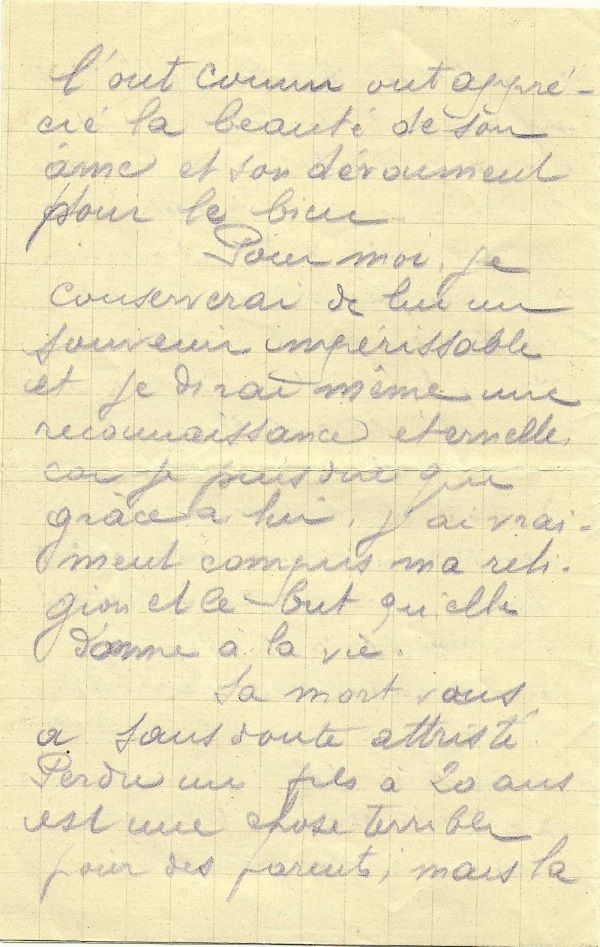 l'ont connu ont appré-
cié la beauté de son
âme et son dévoument
pour le bien
Pour moi, je
conserverai de lui un
souvenir impérissable
et je dirai même une
reconnaissance éternelle,
car je puis dire que
grâce à lui, j'ai vrai-
ment compris ma reli-
gion et le but qu'elle
donne à la vie.
Sa mort vous
a sans doute attristé.
Perdre un fils à 20 ans
est une chose terrible
pour des parents, mais la